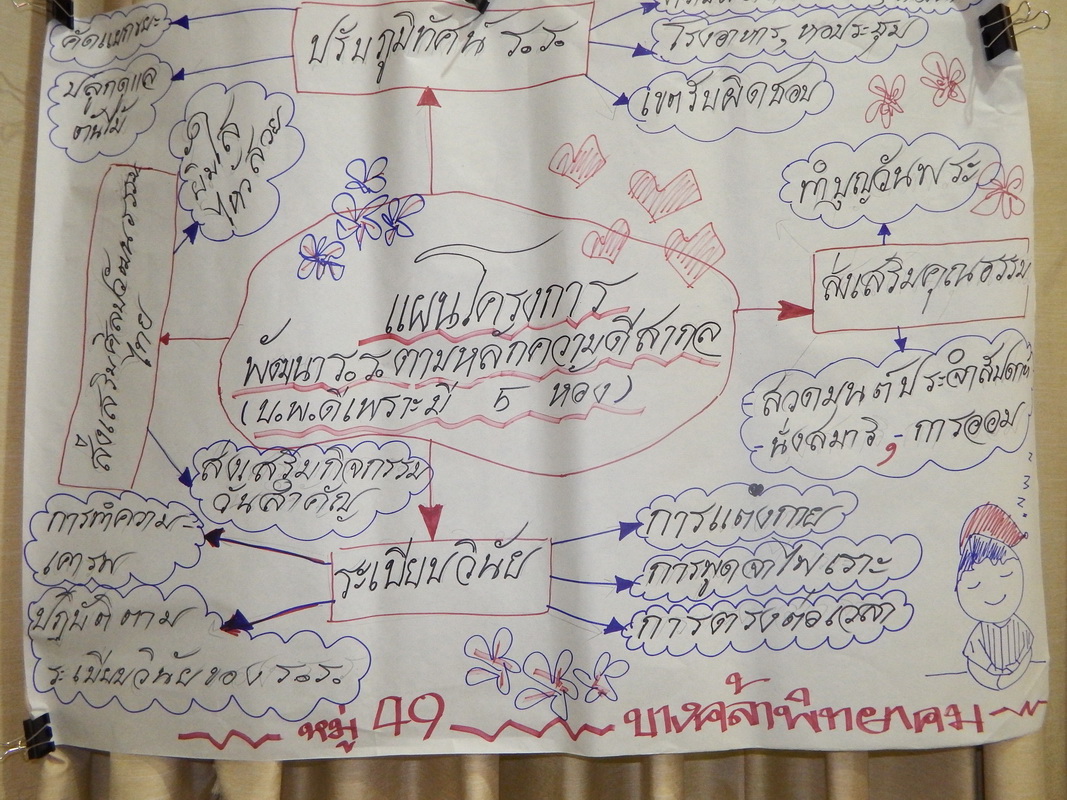 คัดแยกขยะ
ปลูกดูแล
ต้นไม้
ปรับภูมิทัศน์ ร.ร.
โรงอาหาร, หอประชุม
เขตรับผิดชอบ
ยิ้มใส
ไหว้สวย
ส่งเสริมศิลปวัฒนธรรม
ไทย
แผนโครงการ
พัฒนาร.ร.ตามหลักความดีสากล
(บ.พ.ดีเพราะมี 5 ห้อง)
ทำบุญวันพระ
ส่งเสริมคุณธรรม
สวดมนต์ประจำสัปดาห์
-นั่งสมาธิ, -การออม
ส่งเสริมกิจกรรม
วันสำคัญ
การทำความ-
เคารพ
ปฏิบัติตาม
ระเบียบวินัยของ ร.ร.
ระเบียบวินัย
การแต่งกาย
การพูดจาไพเราะ
การตรงต่อเวลา
หมู่ 49
บางคล้าพิทยาคม